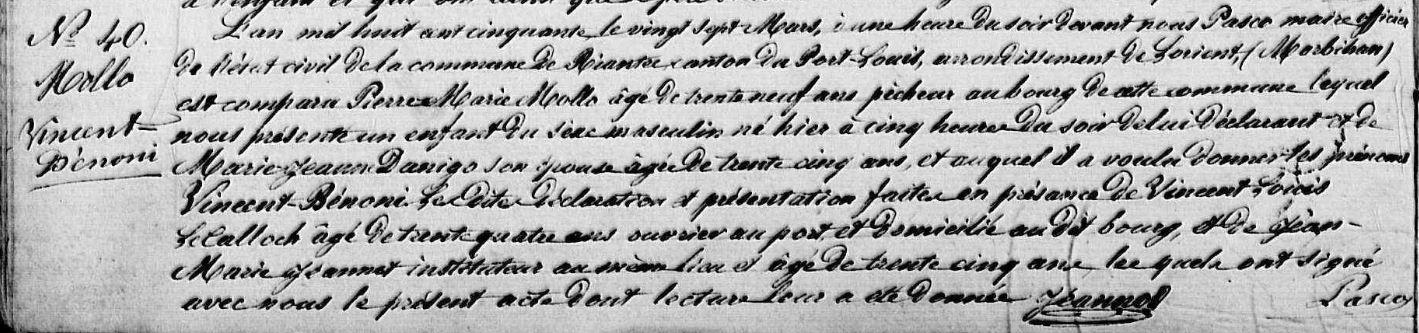 L'an mil huit cent cinquante le vingt sept Mars, à une heure du soir devant nous Pasco maire officier
Nº 40.
de l'état civil de la commune de Riantec canton du Port-Louis, arrondissement de Lorient, (Morbihan)
Mollo
est comparu Pierre Marie Mollo âgé de trente neuf ans pêcheur au bourg de cette commune lequel
Vincent-
nous présente un enfant du sexe masculin né hier à cinq heures du soir de lui déclarant et de
Bénoni
Marie-Jeanne Danigo son épouse âgée de trente cinq ans, et auquel il a voulu donner les prénoms
Vincent-Bénoni Les dites déclaration et présentation faites en présence de Vincent Louis
Le Calloch âgé de trente quatre ans ouvrier au port et domicilié au dit bourg, et de Jean-
Marie Jeannot instituteur au même lieu et âgé de trente cinq ans lesquels ont signé
avec nous le présent acte dont lecture leur a été donnée Jeannot Pasco